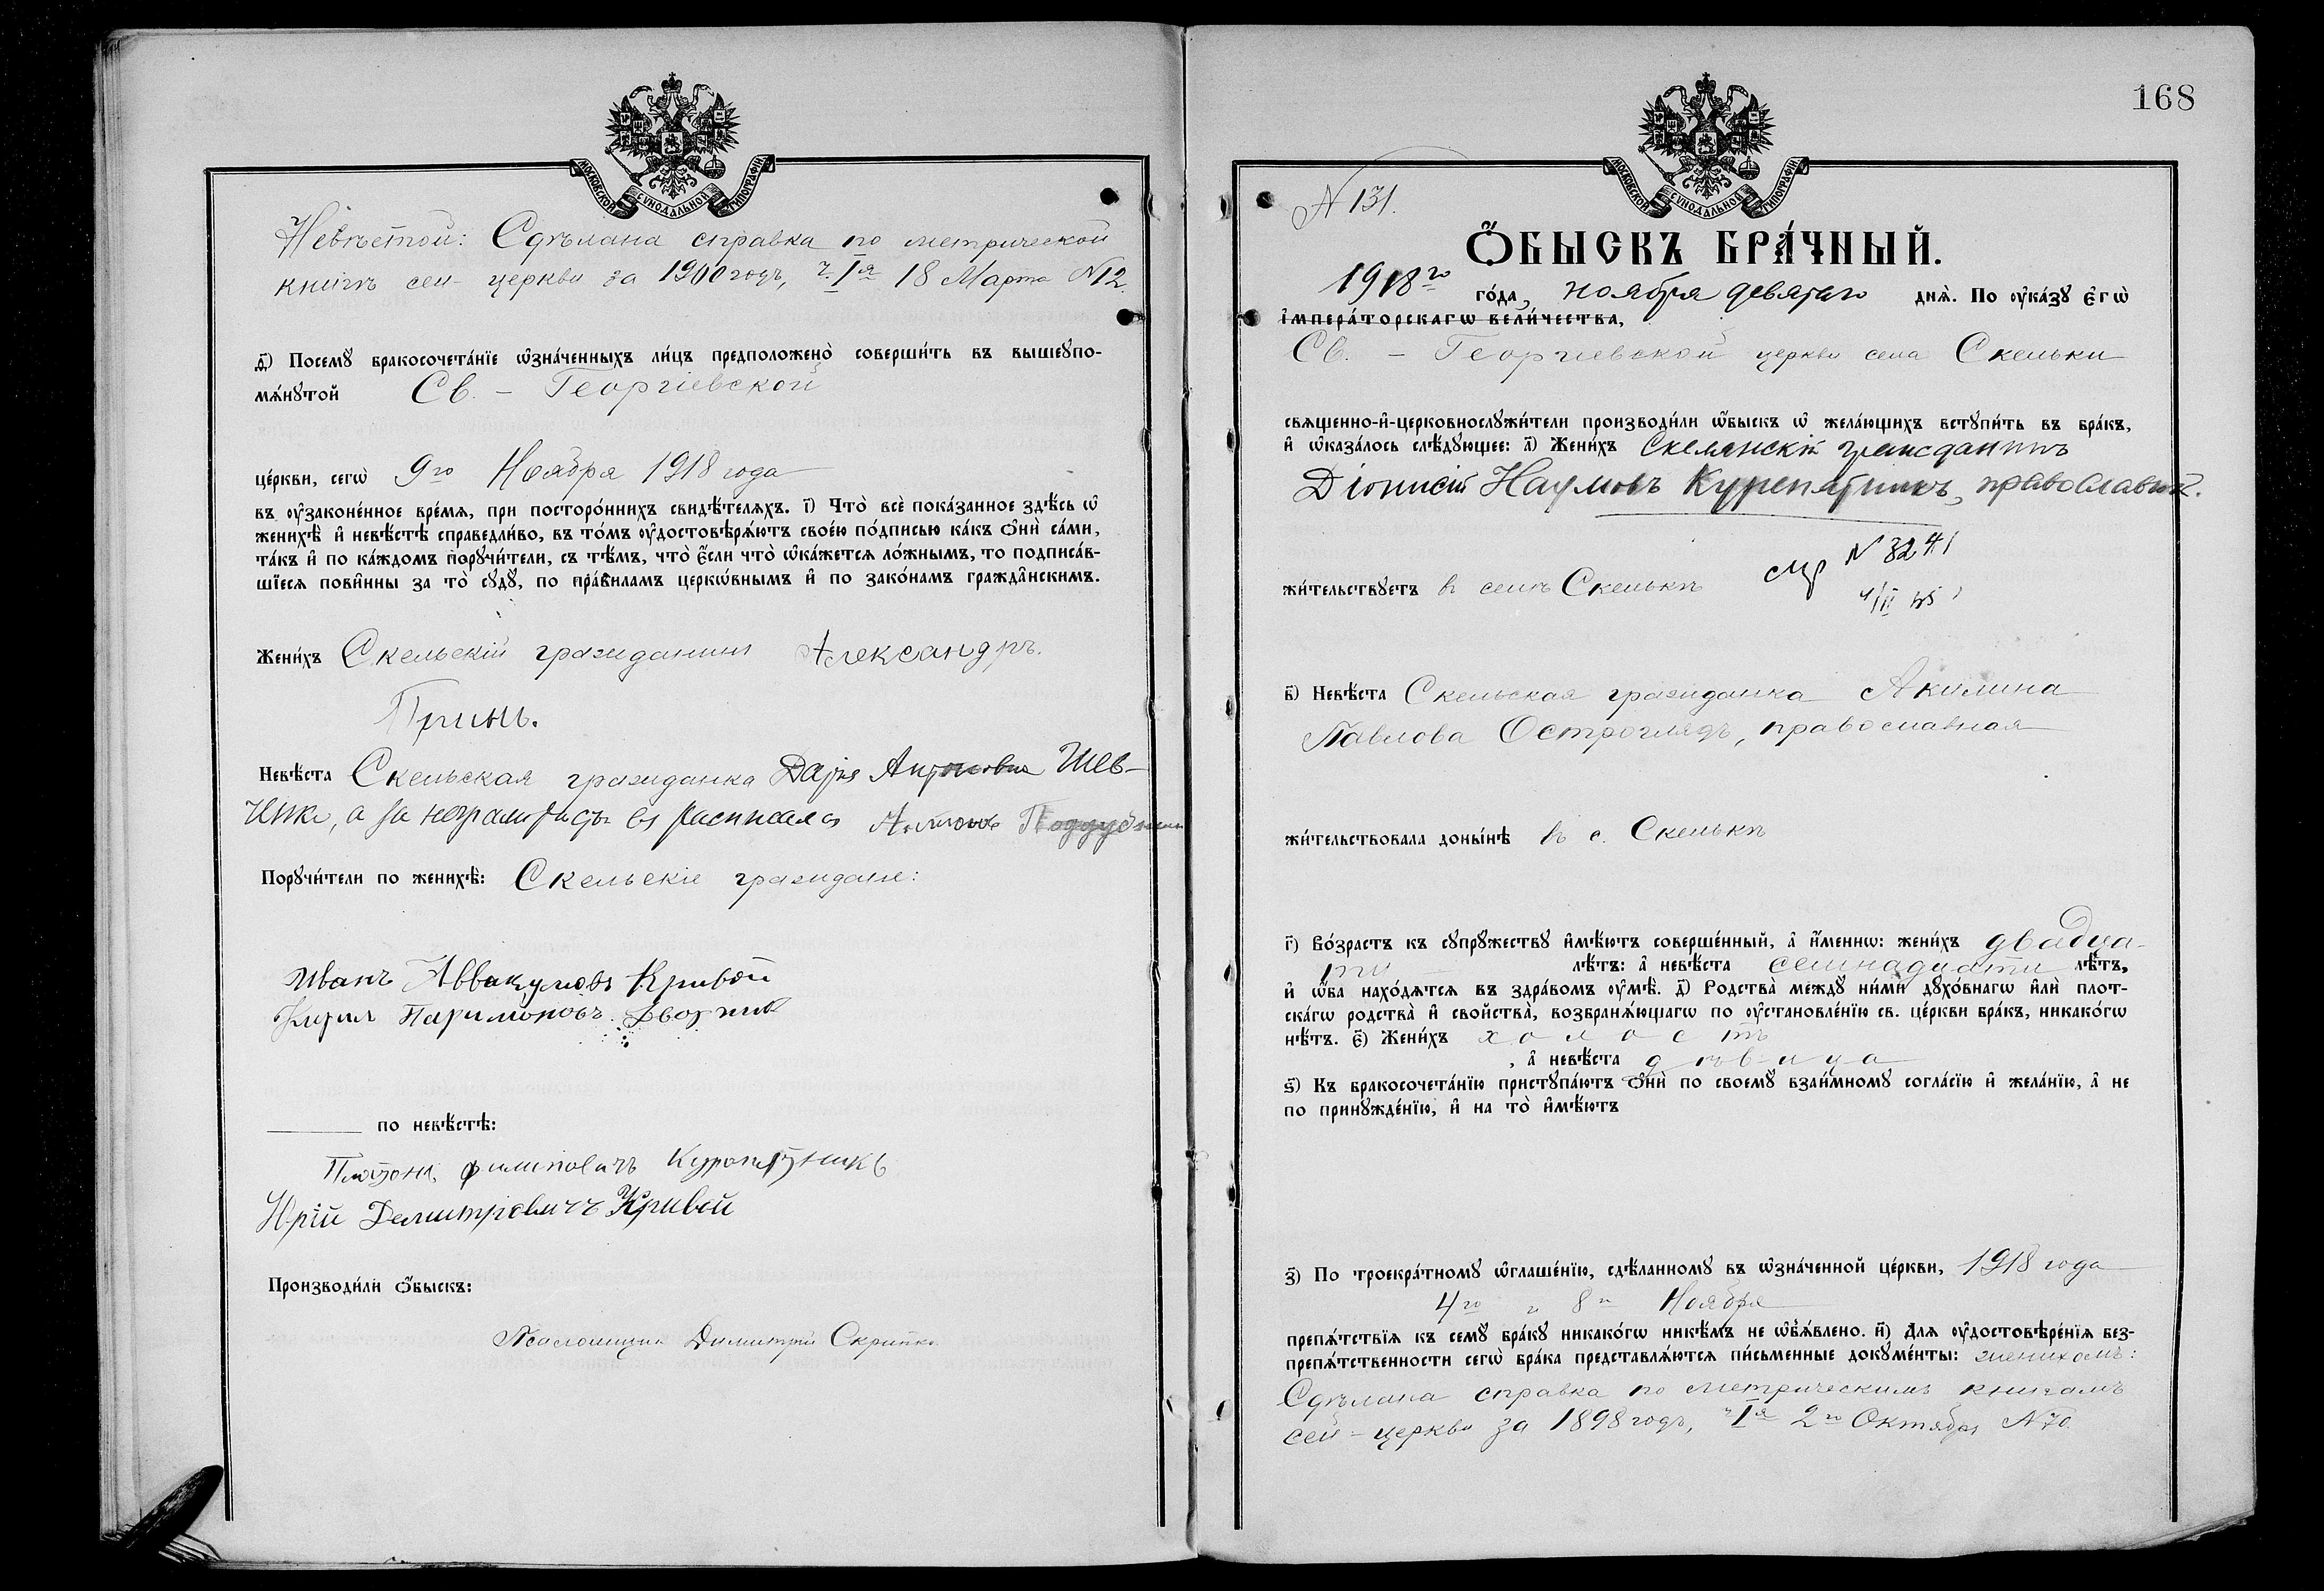 МОСКОВСКОЙ СѴНОДАЛЬНОЙ ТИПОГРАФІИ
Невѣстой: Сдѣлана справка по метрической
книгѣ сей церкви за 1900 годъ, ч. Iя 18 Марта №12.
д҃) Посемꙋ бракосочета́нїе ѡ҆зна́ченныхъ ли́цъ предположено̀ соверши́ть въ вышеꙋпо-
мѧ́нꙋтой Св. - Георгіевской
це́ркви, сегѡ̀ 9го Ноября 1918 года
въ ᲂу҆законе́нное вре́мѧ, при посторо́ннихъ свидѣ́телѧхъ. і҃) Что̀ всѐ пока́занное здѣ́сь ѡ҆
женихѣ̀ и҆ невѣ́стѣ справедли́во, въ то́мъ ᲂу҆достовѣрѧ́ютъ свое́ю по́дписью ка́къ ѻ҆нѝ са́ми,
та́къ и҆ по ка́ждомъ порꙋчи́тели, съ тѣ́мъ, что̀ є҆́сли что̀ ѡ҆ка́жетсѧ ло́жнымъ, то подписа́в-
шїесѧ пови́нны за то̀ сꙋдꙋ̀, по пра́виламъ церко́внымъ и҆ по зако́намъ гражда́нскимъ.
Жени́хъ Скельскій гражданинъ Александръ.
Гринь.
Невѣ́ста Скельская гражданка Дарія Антоновна Шев-
чикъ, а за неграмотность ея расписался Поддубный
Порꙋчи́тели по женихѣ̀: Скельскіе граждане:
Иванъ Аввакумовъ Кривой
Кирил Паримоновъ Дворник
по невѣ́стѣ:
Платонъ Филиповичъ Куропятникъ
Юрій Демитріевичъ Кривой
Производи́ли ѻ҆́быскъ:
Псаломщикъ Димитрій Скрипка
168
МОСКОВСКОЙ СѴНОДАЛЬНОЙ ТИПОГРАФІИ
№ 131.
Ѻ҆́БЫСКЪ БРА́ЧНЫЙ.
1918го го́да, ноября девятаго днѧ̀. По ᲂу҆ка́зꙋ є҆гѡ̀
і҆мпера́торскагѡ вели́чества,
Св. - Георгіевской церкви села Скельки
свѧщенно-и҆-церковнослꙋжи́тели производи́ли ѡ҆́быскъ ѡ҆ жела́ющихъ встꙋпи́ть въ бра́къ,
и҆ ѡ҆каза́лось слѣ́дꙋющее: а҃) Жени́хъ Скелянскій гражданинъ
Діонисій Наумовъ Курепятникъ, православный.
жи́тельствꙋетъ въ селѣ Скелькѣ
№ 3241
в҃) Невѣ́ста Скельская гражданка Акилина
Павлова Остроглядъ, православная
жи́тельствовала доны́нѣ въ с. Скелькѣ
г҃) Во́зрастъ къ сꙋпрꙋ́жествꙋ и҆мѣ́ютъ соверше́нный, а҆ и҆́менно: жени́хъ двадца-
ти лѣ́тъ: а҆ невѣ́ста семнадцати лѣ́тъ,
и҆ ѻ҆́ба нахо́дѧтсѧ въ здра́вомъ ᲂу҆мѣ̀. д҃) Родства̀ междꙋ ни́ми дꙋхо́внагѡ и҆лѝ плот-
ска́гѡ родства̀ и҆ сво́йства̀, возбранѧ́ющагѡ по ᲂу҆становле́нїю св. це́ркви бра́къ, никако́гѡ
нѣ́тъ. є҃) Жени́хъ холостъ
, а҆ невѣ́ста дѣвица
ѕ҃) Къ бракосочета́нїю пристꙋпа́ютъ ѻ҆нѝ по своемꙋ̀ взаи́мномꙋ согла́сїю и҆ жела́нїю, а҆ не
по принꙋжде́нїю, и҆ на то̀ и҆мѣ́ютъ
з҃) По троекра́тномꙋ ѡ҆глаше́нїю, сдѣ́ланномꙋ въ ѡ҆зна́ченной це́ркви, 1918 года
4го и 8го Ноября
препѧ́тствїѧ къ семꙋ̀ бра́кꙋ никако́гѡ никѣ́мъ не ѡ҆б̾ѧ́влено. и҃) Длѧ ᲂу҆достовѣре́нїѧ без-
препѧ́тственности сегѡ̀ бра́ка представлѧ́ютсѧ пи́сьменные докꙋме́нты: женихомъ:
Сдѣлана справка по метрическимъ книгамъ
сей церкви за 1898 годъ, ч. Iя 2го Октября №70.